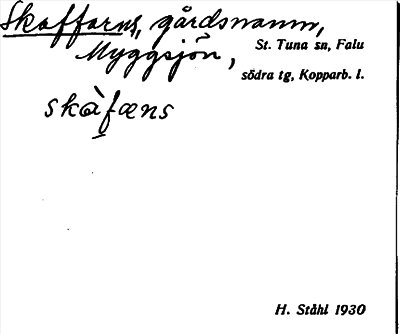 Skaffarns, gårdsnamn,
Myggsjön, St. Tuna sn, Falu
södra tg, Kopparb. l.
skàfæns
H. Ståhl 1930